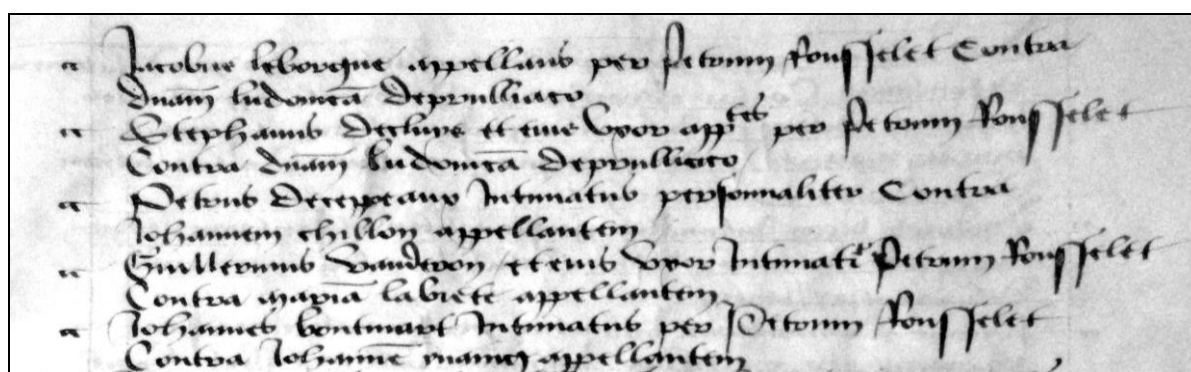 Jacobus leborgne appellans per petrum Rousselet Contra
dnam ludovicā deprulliaco
Stephanus et eius Uxor app^tes per petrum Rousselet
Contra dnam ludovicā deprulliaco
Petrus decepeaux Intimatus personnaliter Contra
Johannem chillon appellantem
Guillermus Vanderon et eius Uxor Intimati Petrum Rousselet
Contra mariā labiete appellantem
Johannes Intimatus per Petrum Rousselet
Contra Johannē appellantem